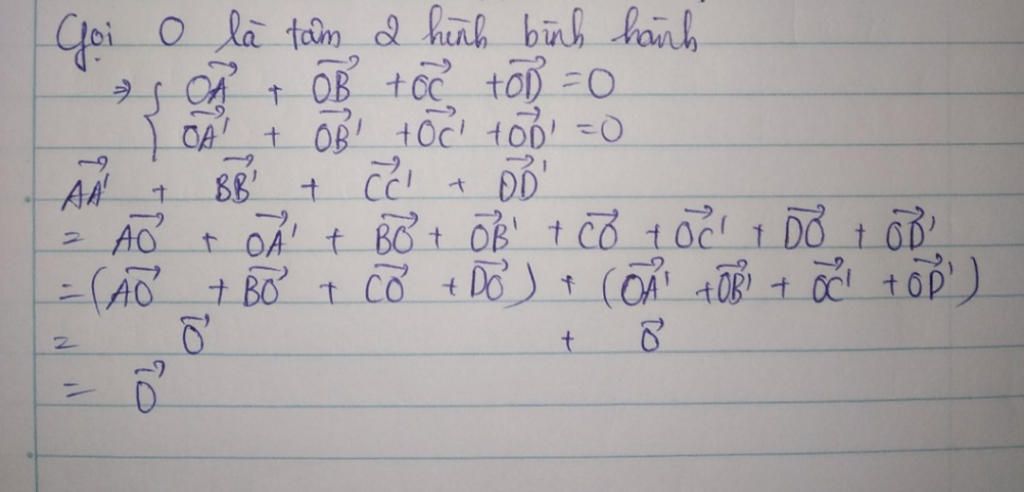 Gọi O là tâm 2 hình bình hành
⇒ { \overrightarrow{OA} + \overrightarrow{OB} + \overrightarrow{OC} + \overrightarrow{OD} = 0
\overrightarrow{OA'} + \overrightarrow{OB'} + \overrightarrow{OC'} + \overrightarrow{OD'} = 0
\overrightarrow{AA'} + \overrightarrow{BB'} + \overrightarrow{CC'} + \overrightarrow{DD'}
= \overrightarrow{AO} + \overrightarrow{OA'} + \overrightarrow{BO} + \overrightarrow{OB'} + \overrightarrow{CO} + \overrightarrow{OC'} + \overrightarrow{DO} + \overrightarrow{OD'}
= (\overrightarrow{AO} + \overrightarrow{BO} + \overrightarrow{CO} + \overrightarrow{DO}) + (\overrightarrow{OA'} + \overrightarrow{OB'} + \overrightarrow{OC'} + \overrightarrow{OD'})
= \overrightarrow{0} + \overrightarrow{0}
= \overrightarrow{0}